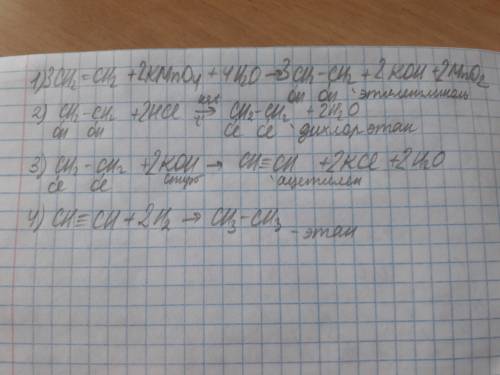 1) 3CH₂=CH₂ +2KMnO₄ +4H₂O → 3CH₂-CH₂ + 2KOH +2MnO₂
OH OH этиленгликоль
2) CH₂-CH₂ +2HCl ⇄ CH₂-CH₂ + 2H₂O
OH OH t Cl Cl дихлорэтан
3) CH₂-CH₂ +2KOH → CH≡CH +2KCl +2H₂O
Cl Cl спирт ацетилен
4) CH≡CH + 2H₂ → CH₃-CH₃
- этан